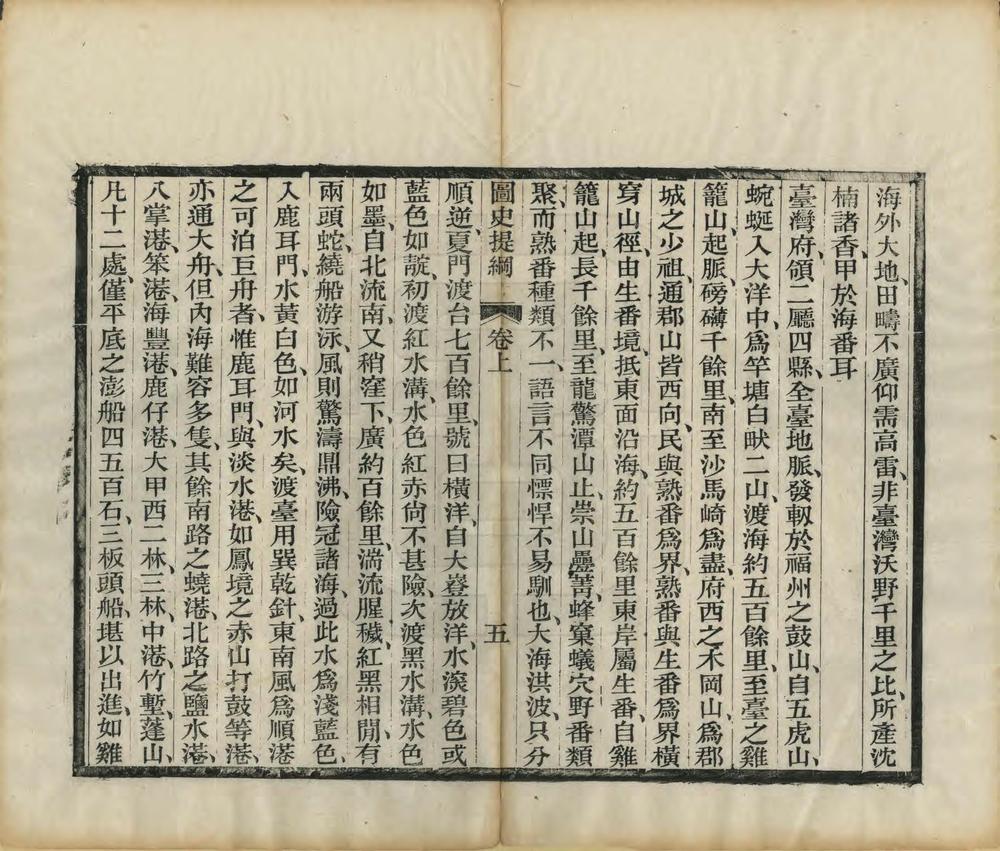 海外大地、田疇不廣仰需高雷、非臺灣沃野千里之比、所產沈
楠諸香、甲於海番耳
臺灣府、領二廳四縣、全臺地脈、發軔於福州之鼓山、自五虎山、
蜿蜒入大洋中、爲竿塘白畎二山、渡海約五百餘里、至臺之雞
籠山、起脈、磅礴千餘里、南至沙馬崎爲盡、府西之木岡山、爲郡
城之少祖、通郡山皆西向、民與熟番爲界、熟番與生番爲界、橫
穿山徑、由生番境、抵東面沿海、約五百餘里東岸屬生番、自雞
籠山起、長千餘里、至龍驚潭山止、崇山疊菁、蜂窠蟻穴、野番類
聚、而熟番種類不一、語言不同慓悍不易馴也、大海洪波、只分
圖史提綱 卷上 五
順逆、夏門渡台七百餘里、號曰橫洋、自大嶝放洋、水滾碧色或
藍色如靛、初渡紅水溝、水色紅赤尙不甚險、次渡黑水溝、水色
如墨、自北流南、又稍窪下、廣約百餘里、湍流腥穢、紅黑相閒、有
兩頭蛇、繞船游泳、風則驚濤鼎沸、險冠諸海、過此水爲淺藍色、
入鹿耳門、水黃白色、如河水矣、渡臺用巽乾針、東南風爲順、港
之可泊巨舟者、惟鹿耳門、與淡水港、如鳳境之赤山打鼓等港、
亦通大舟、但內海難容多隻、其餘南路之蟯港、北路之鹽水港、
八掌港、笨港、海豐港、鹿仔港、大甲西二林、三林、中港、竹塹、蓬山、
凡十二處、僅平底之澎船四五百石、三板頭船、堪以出進、如雞